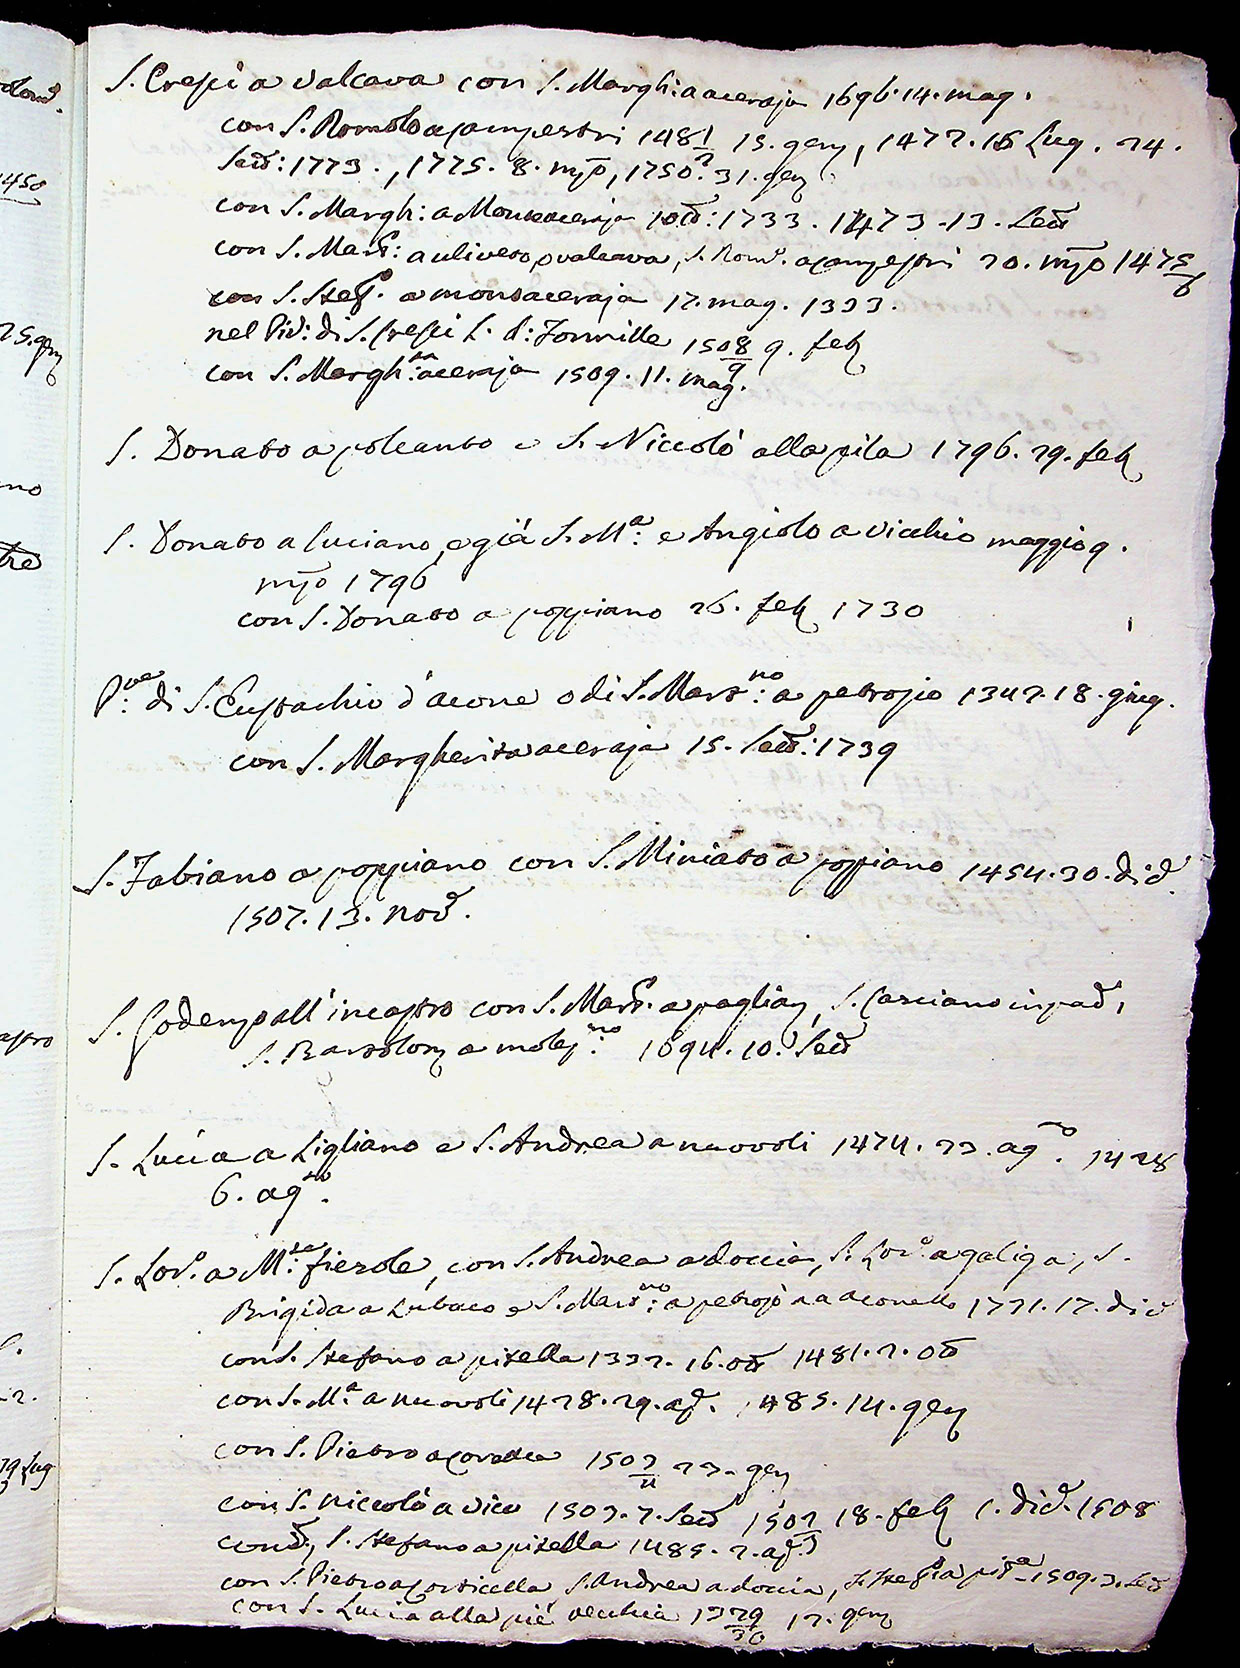 S. Cresci a Valcava con S. Margh: a aceraja 1696. 14. mag.
con S. Romolo a campestri 1481/2 15. gen, 1472. 16 Lug. 24.
Sett: 1773., 1775. 8. mzo, 1750. 31. gen
con S. Margh: a Montaceraja 10 ott: 1733. 1473. 13. Sett
con S. Mart: a uliveto, o valcava, S. Rom. a campestri 20. mzo 1475/6
con S. Stef. a montaceraja 17. mag. 1333.
nel Piv: di S. Cresci 1508/9 9. feb
con S. Margh.ta: aceraja 1509. 11. mag.
S. Donato a polcanto e S. Niccolò alla pila 1796. 29. feb
S. Donato a Luciano, e già S. M.a: e Angiolo a Vicchio maggio 9.
mzo 1796
con S. Donato a poppiano 26. feb 1730
P.ve: di S. Eustachio d'acone o di S. Mart.no: a petrojo 1347. 18. giug.
con S. Margherita aceraja 15. Sett: 1739
S. Fabiano a poppiano con S. Miniato a poppiano 1454. 30. dic.
1507. 13. nov.
S. Godenzo all'incastro con S. Mart. a paglian, S. Casciano in pad,
S. Bartolom a molez.no: 1694. 10. Sett
S. Lucia a Ligliano e S. Andrea a nuovoli 1474. 23. ag.to. 1428
6. ag.to.
S. Lor.o a M.te: fiesole, con S. Andrea a doccia, S. Lor.o a galiga, S.
Brigida a Lubaco e S. Mart.no: a petrojo a aconetto 1721. 17. dic
con S. Stefano a pitella 1332. 16. ott 1481. 2. ott
con S. M.a a nuovoli 1428. 29. ap. 1485. 14. gen
con S. Pietro a 1503/4 23. gen
con S. Niccolò a vico 1503. 7. Sett 1502/3 18. feb 1. dic. 1508
con S. Stefano a pitella 1485. 2. ap.
con S. Pietro a corticella S. Andrea a doccia, S. Stef.o a pit.a 1509. 3. Sett
con S. Lucia alla piè vecchia 1329/30 17. gen